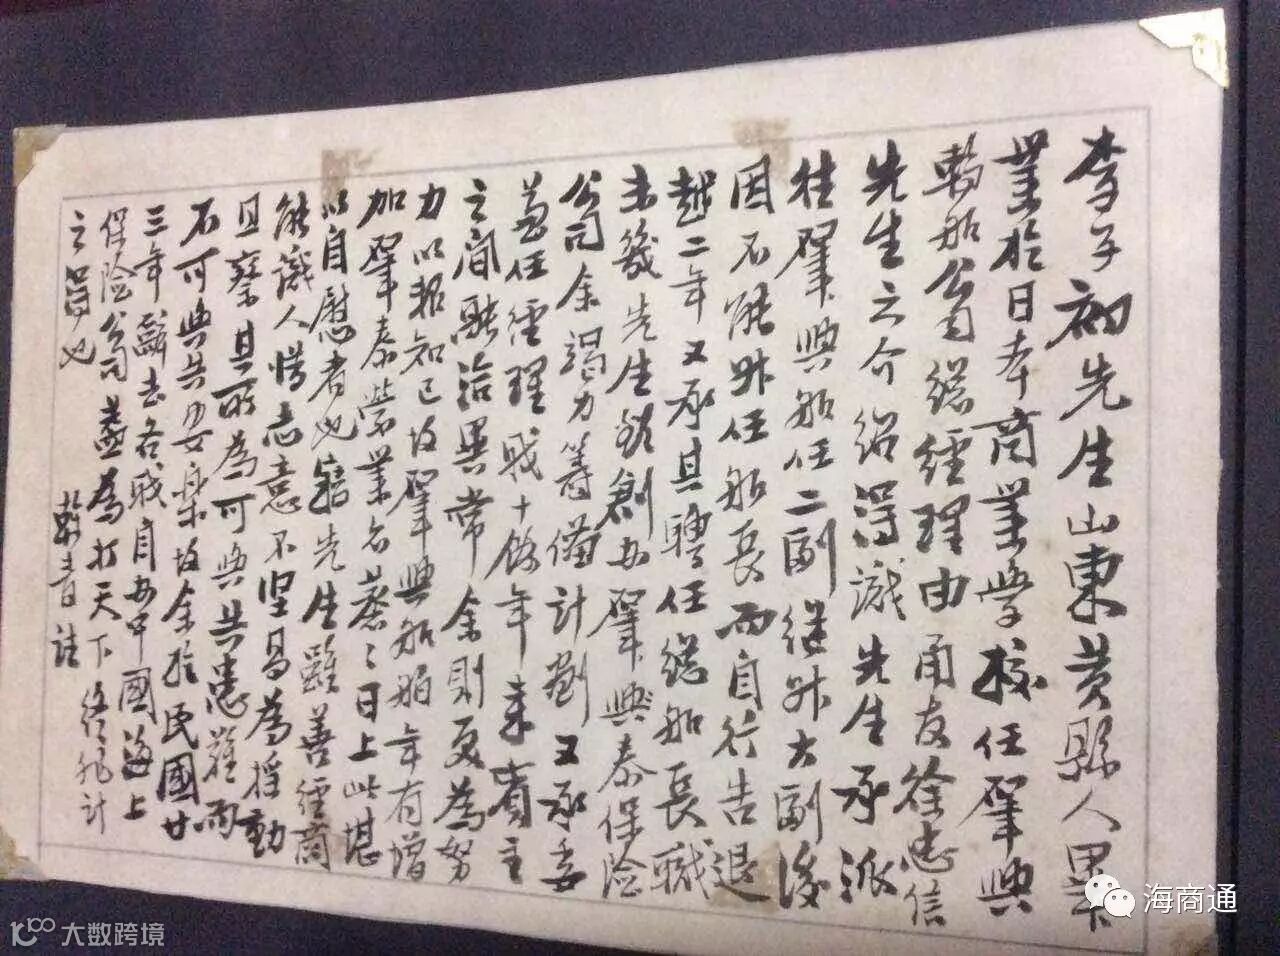 李子初先生山東黄縣人畢
業於日本商業學校任肇興
輪船公司總經理由甬友徐忠信
先生之介紹得識先生承派
往肇興船任二副继升大副後
因不能升任船長而自行告退
越二年又承其聘任總船長職
未幾先生欲創办肇興泰保险
公司余竭力筹備計劃又承委
兼任經理職十餘年来賓主
之间融洽異常余則更為努
力以報知己故肇興船舶年有增
加肇泰營業亦蒸々日上此堪
以自慰者也羅先生雖善經商
能識人惜志意不坚易為摇動
且察其所為可與共患難而
不可與共安樂故余於民國廿
三年辭去各職自办中國海上
保险公司盖為打天下终非計
之得也
註
海商通
大数跨境